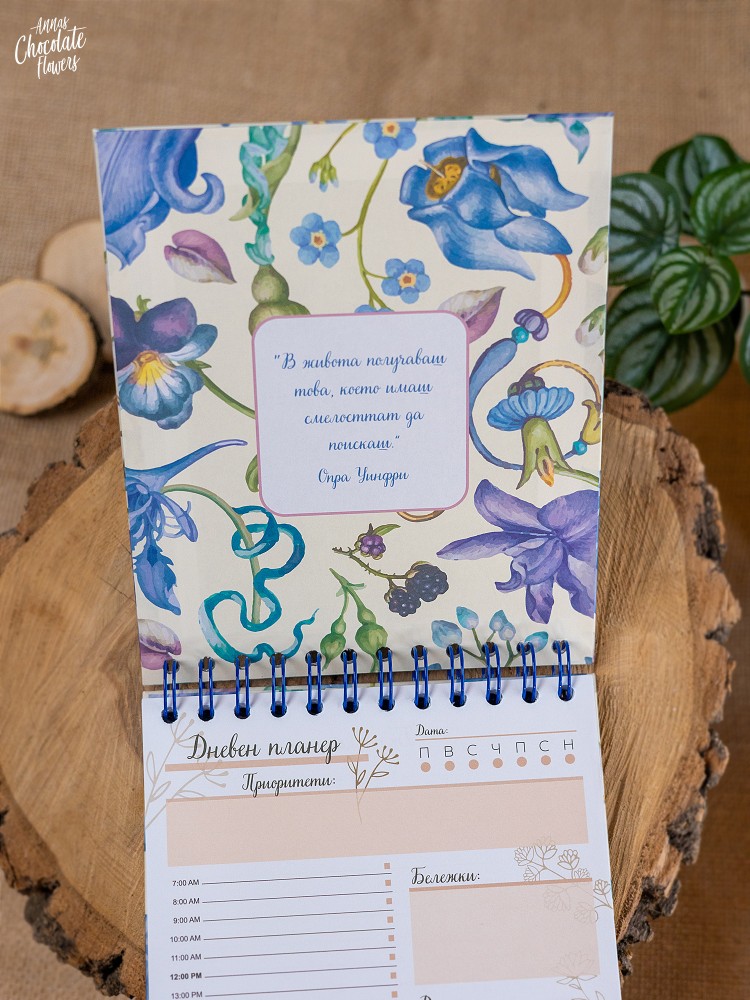 Annas
Chocolate
Flowers
"В живота получаваш
това, което имаш
смелосттат да
поискаш."
Опра Уинфри
Дневен планер
Дата:
П В С Ч П С Н
Приоритети:
7:00 AM
8:00 AM
9:00 AM
10:00 AM
11:00 AM
12:00 PM
13:00 PM
Бележки: